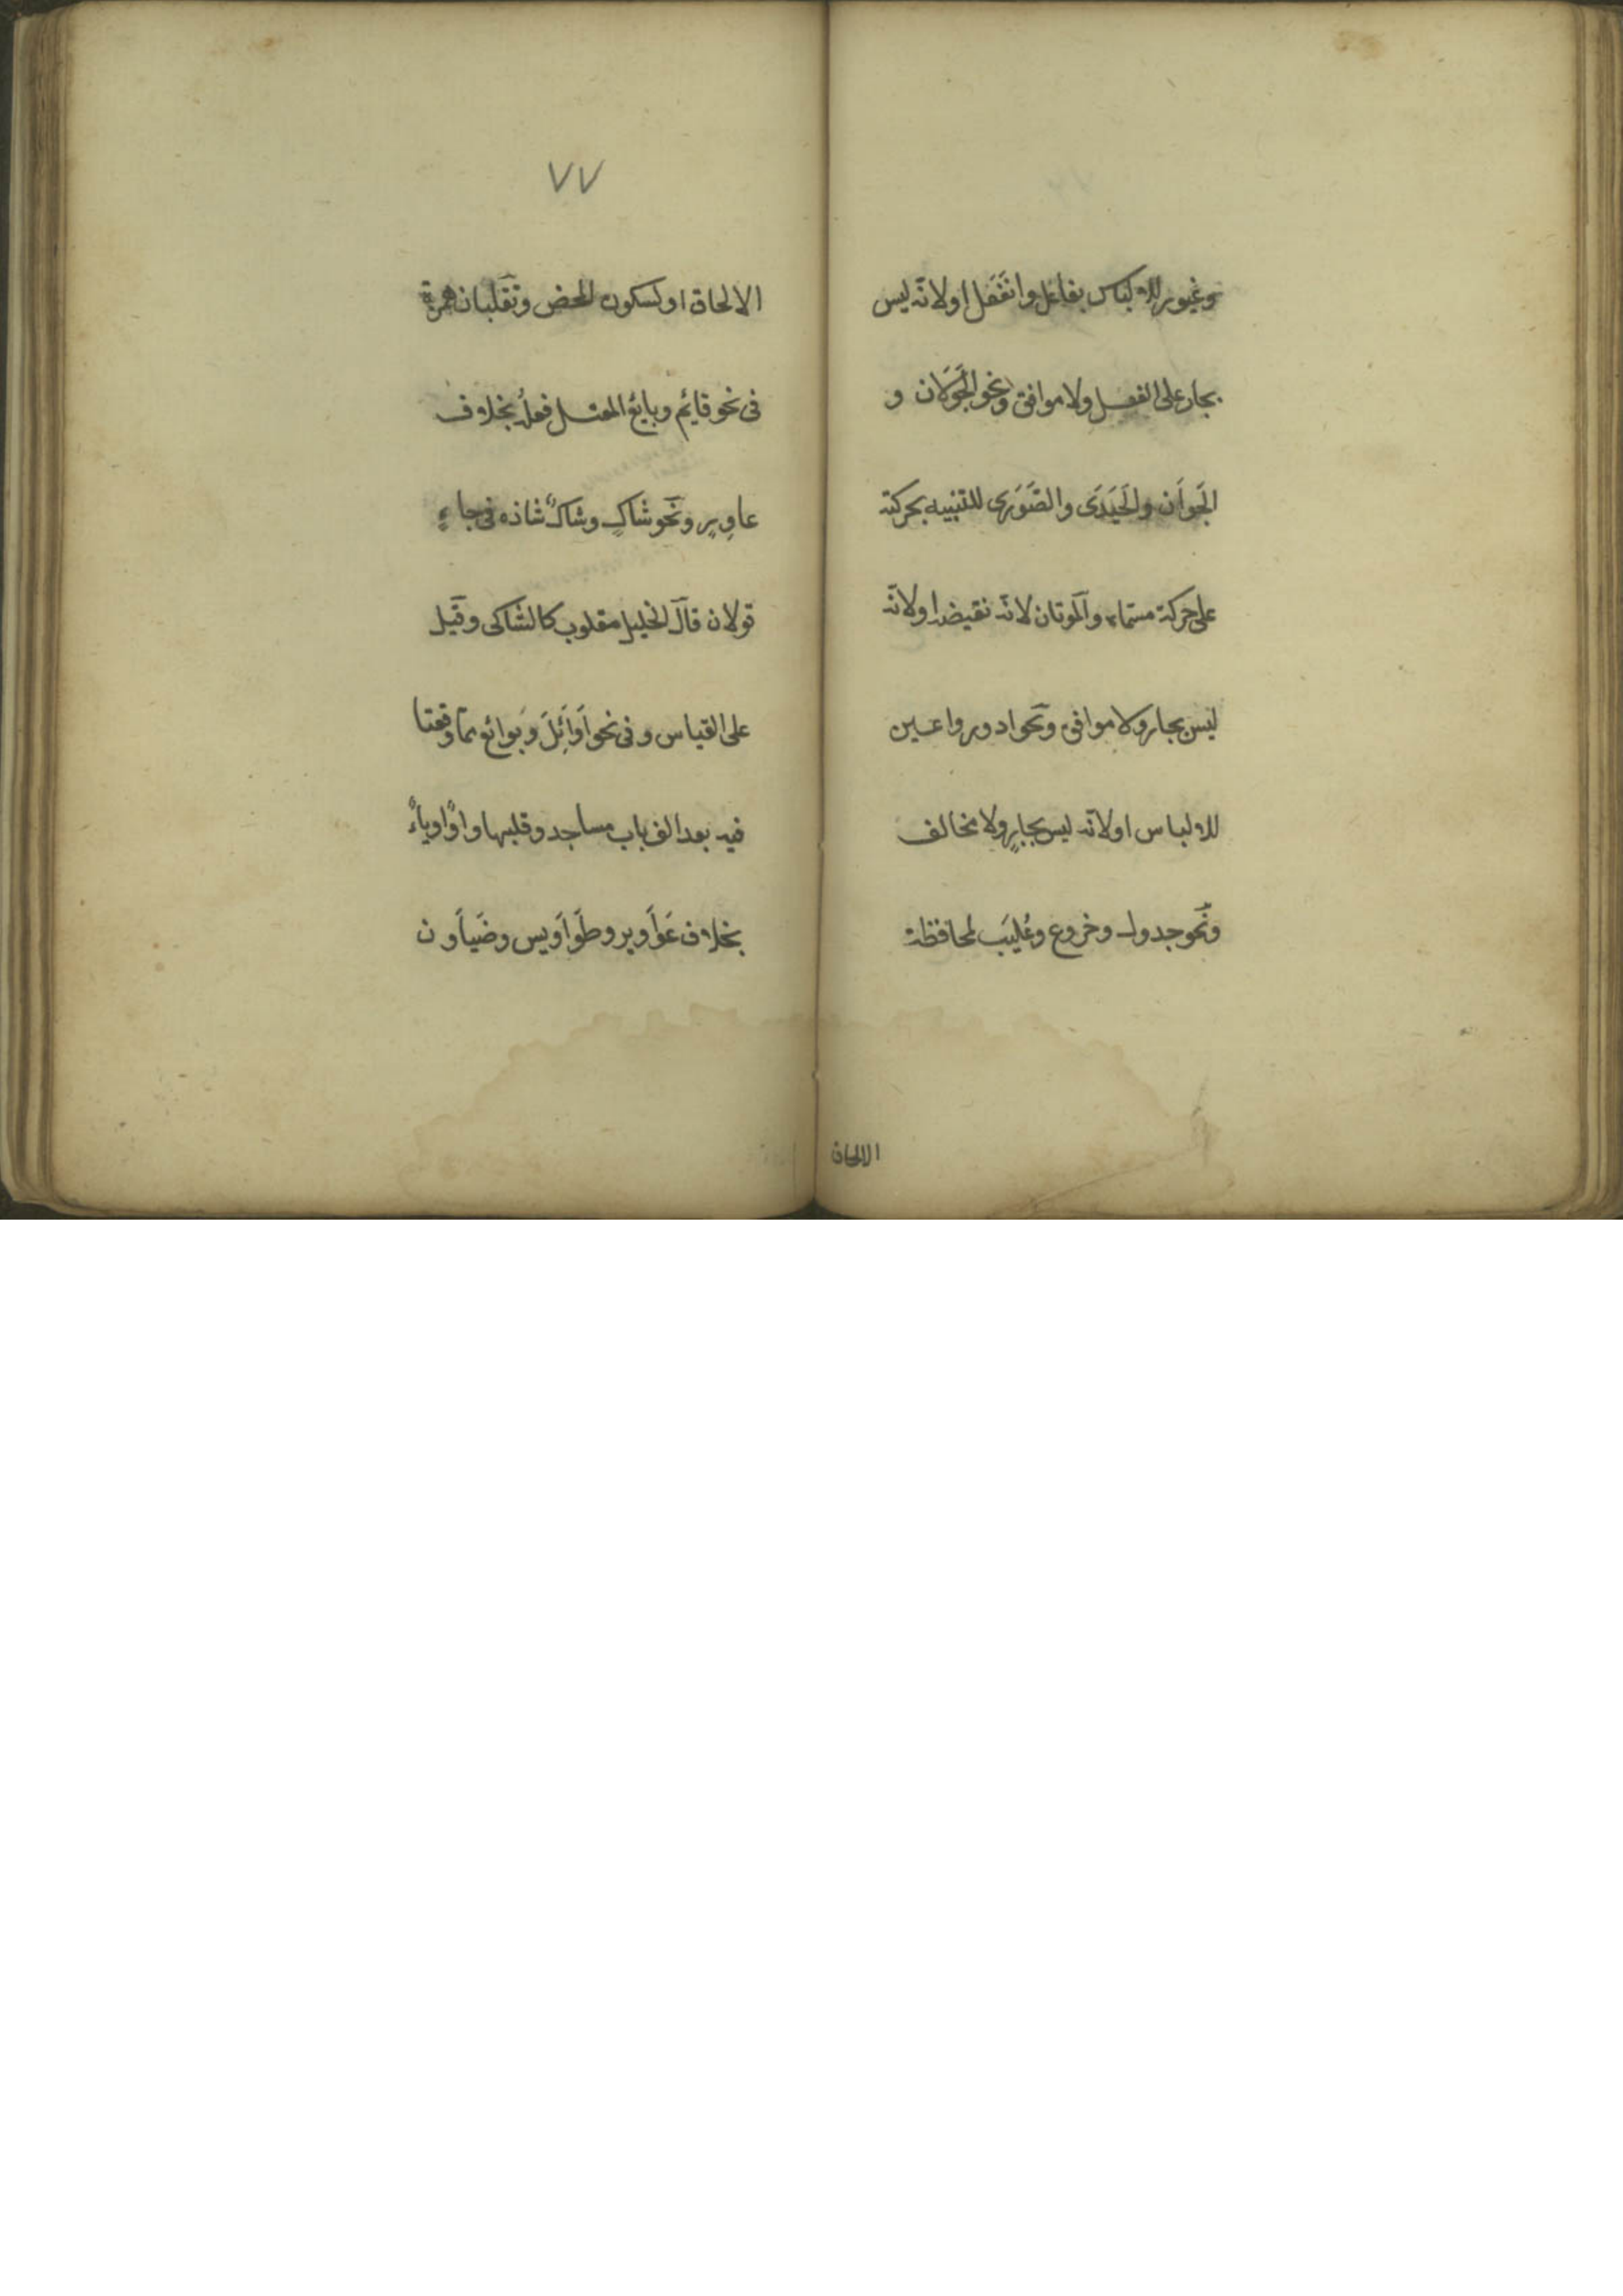 وغيور للالباس بفاعل وانفَعَل اولانه ليس
بجار على الفعل ولا موافق ونحو الجَوَلان و
الحَيَوَان والحَيَدَى والصَّوَرى للتنبيه بحركته
على حركة مسماه والموتان لانه نقيضه اولانه
ليس بجار ولا موافق ونحو ادور واعين
للالباس اولانه ليس بجارٍ ولا مخالف
ونحو جدول وخروع وعُليَب لمحافظة
الالحاق
٧٧
الالحاق او لسكون المحض وتقلبان همزة
فى نحو قائم وبائع المعتل فعلُه بخلاف
عاوِرٍ ونحو شاكٍ وشاكٌ شاذ وفى جاءٍ
قولان قال الخليل مقلوب كالشاكى وقيل
على القياس وفى نحو اَوَائِلَ وَبَوائع مما وقعتا
فيه بعد الف باب مساجد وقلبها واوًا وياءً
بخلاف عَوَاَوير وطَوَاَويس وضَيَاَون